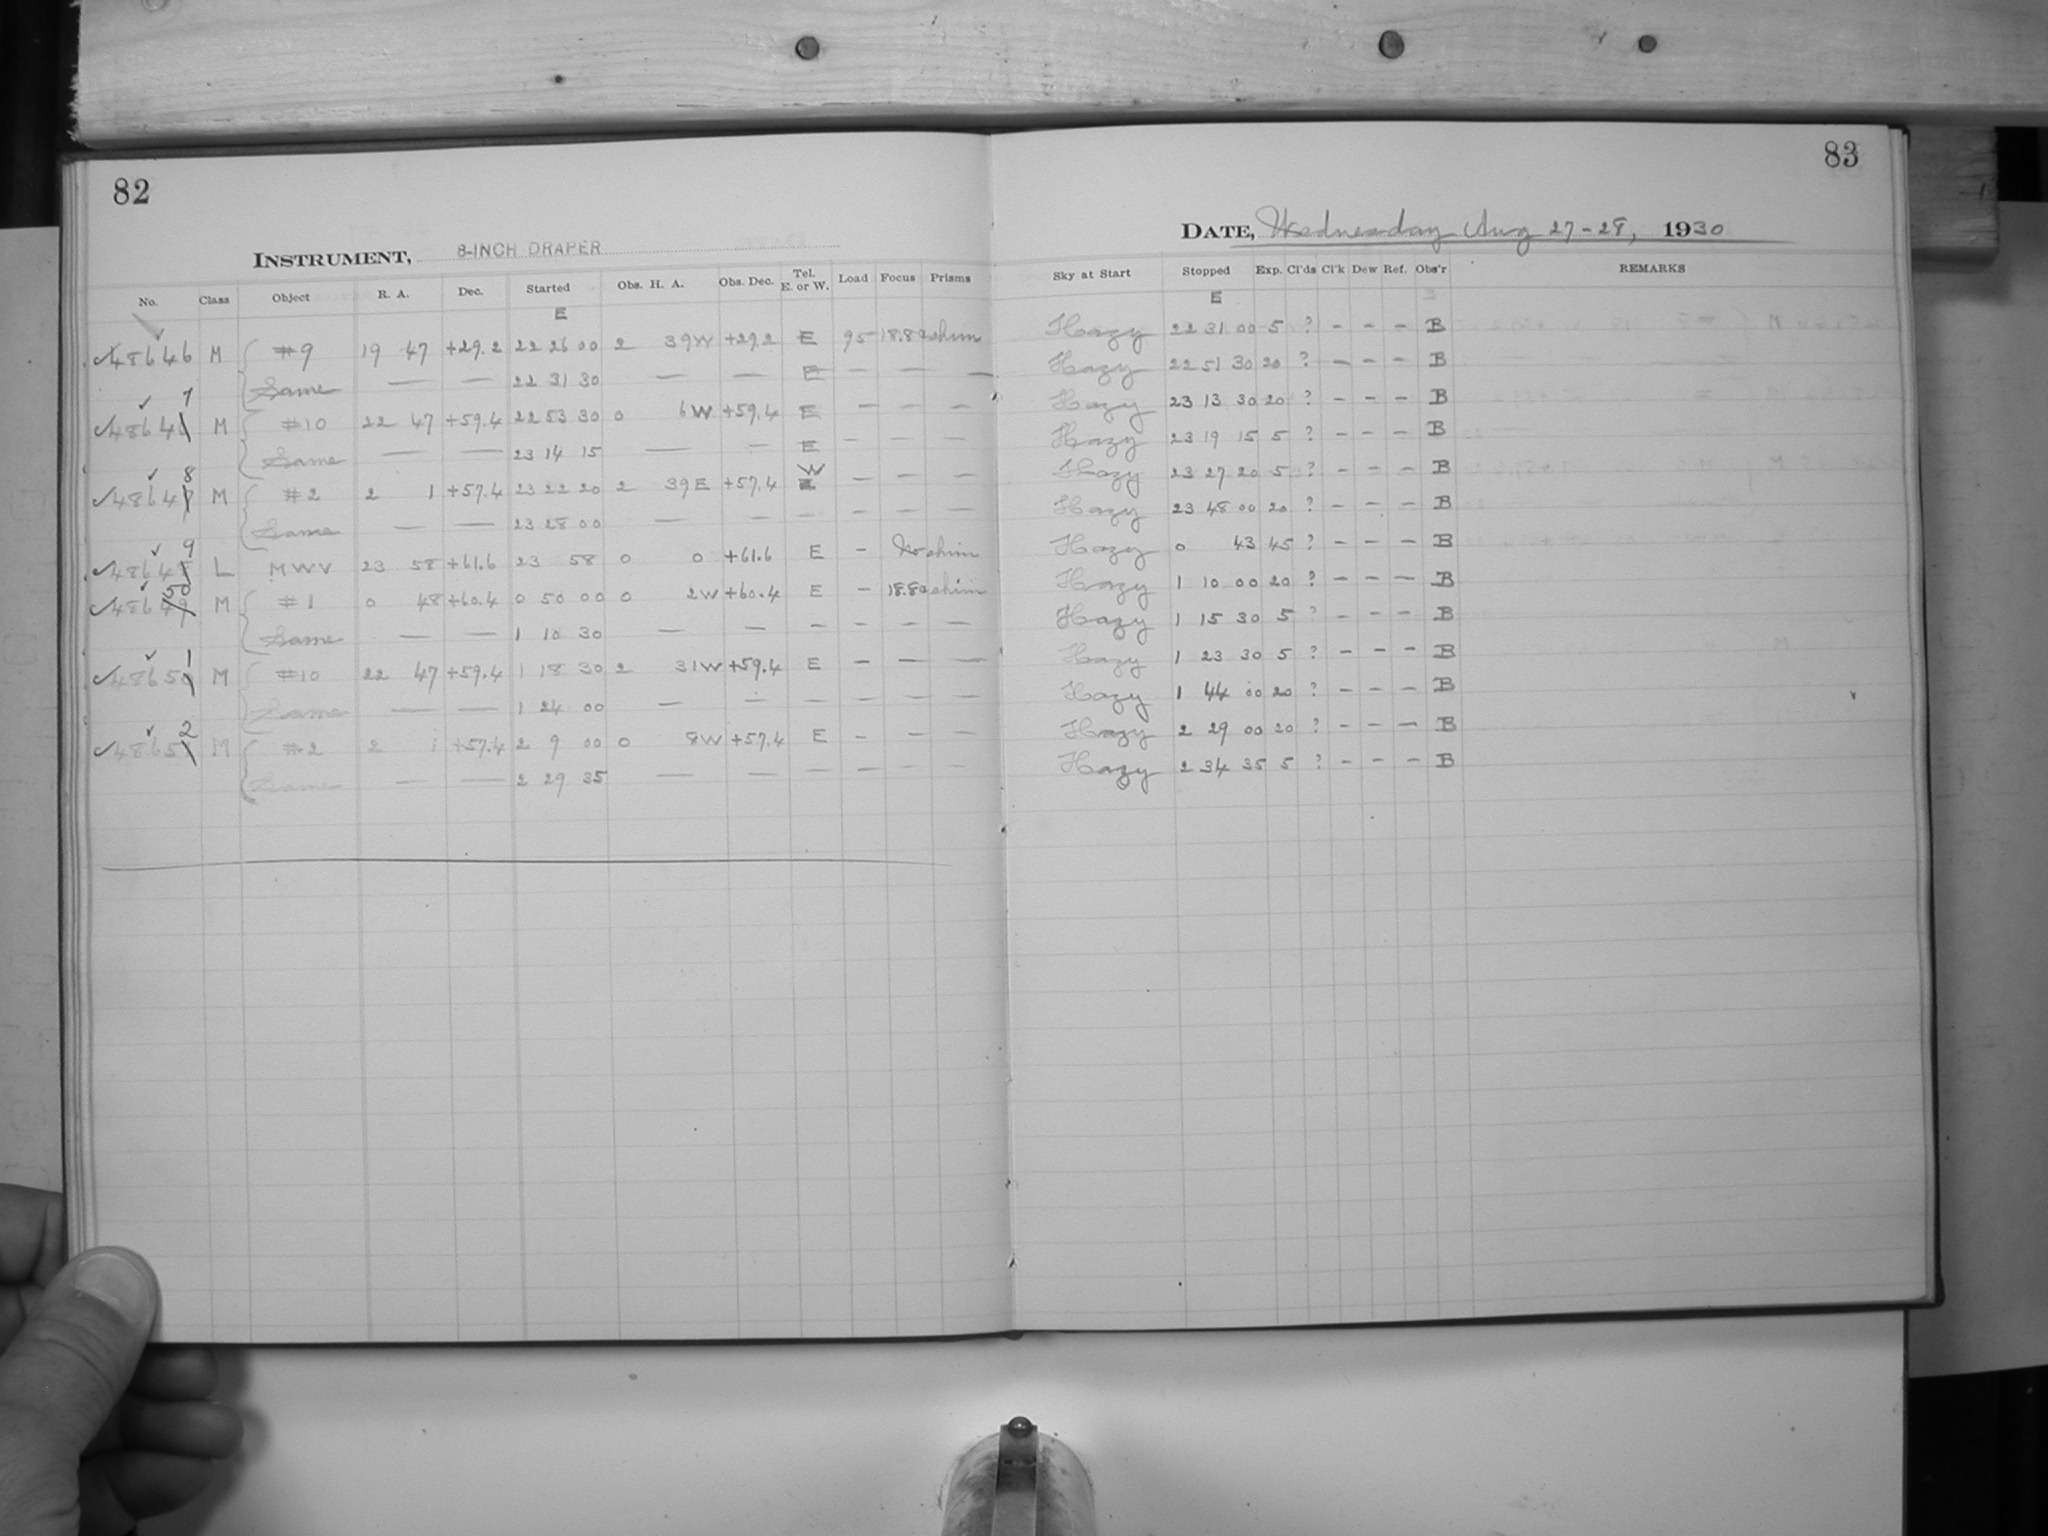 82
INSTRUMENT, 8-INCH DRAPER
No. Class Object R. A. Dec. Started Obs. H. A. Obs. Dec. Tel. E. or W. Load Focus Prisms
E
48646 M #9 19 47 +29.2 22 26 00 2 39W +29.2 E 95 18.8 shim
Same — — 22 31 30 — — E — — —
7
48646 M #10 22 47 +59.4 22 53 30 0 6W +59.4 E — — —
Same — — 23 14 15 — — E — — —
8 W
48647 M #2 2 1 +57.4 23 22 20 2 39E +57.4 E — — —
Same — — 23 28 00 — — — — — —
9
48648 L MWV 23 58 +61.6 23 58 0 0 +61.6 E — No shim
50
48649 M #1 0 48 +60.4 0 50 00 0 2W +60.4 E — 18.8 shim
Same — — 1 10 30 — — — — — —
1
48650 M #10 22 47 +59.4 1 18 30 2 31W +59.4 E — — —
Same — — 1 24 00 — — — — — —
2
48651 M #2 2 1 +57.4 2 9 00 0 8W +57.4 E — — —
Same — — 2 29 35 — — — — — —
83
DATE, Wednesday Aug 27-28, 1930
Sky at Start Stopped Exp. Cl'ds Cl'k Dew Ref. Obs'r REMARKS
E
Hazy 22 31 00 5 ? — — — B
Hazy 22 51 30 20 ? — — — B
Hazy 23 13 30 20 ? — — — B
Hazy 23 19 15 5 ? — — — B
Hazy 23 27 20 5 ? — — — B
Hazy 23 48 00 20 ? — — — B
Hazy 0 43 45 ? — — — B
Hazy 1 10 00 20 ? — — — B
Hazy 1 15 30 5 ? — — — B
Hazy 1 23 30 5 ? — — — B
Hazy 1 44 00 20 ? — — — B
Hazy 2 29 00 20 ? — — — B
Hazy 2 34 35 5 ? — — — B